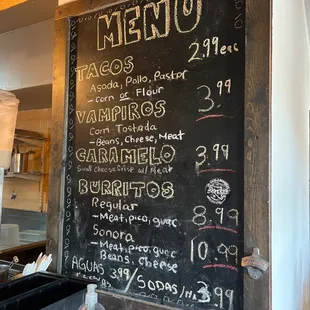 MENU
TACOS 2.99 each
Asada, Pollo, Pastor
- Corn or Flour
VAMPIROS 3.99
Corn Tostada
- Beans, Cheese, Meat
CARAMELO 3.99
Small cheese crisp w/ Meat
BURRITOS
Regular 8.99
- Meat, pico, guac
Sonora 10.99
- Meat, pico, guac
Beans, Cheese
AGUAS 3.99 / SODAS 3.99